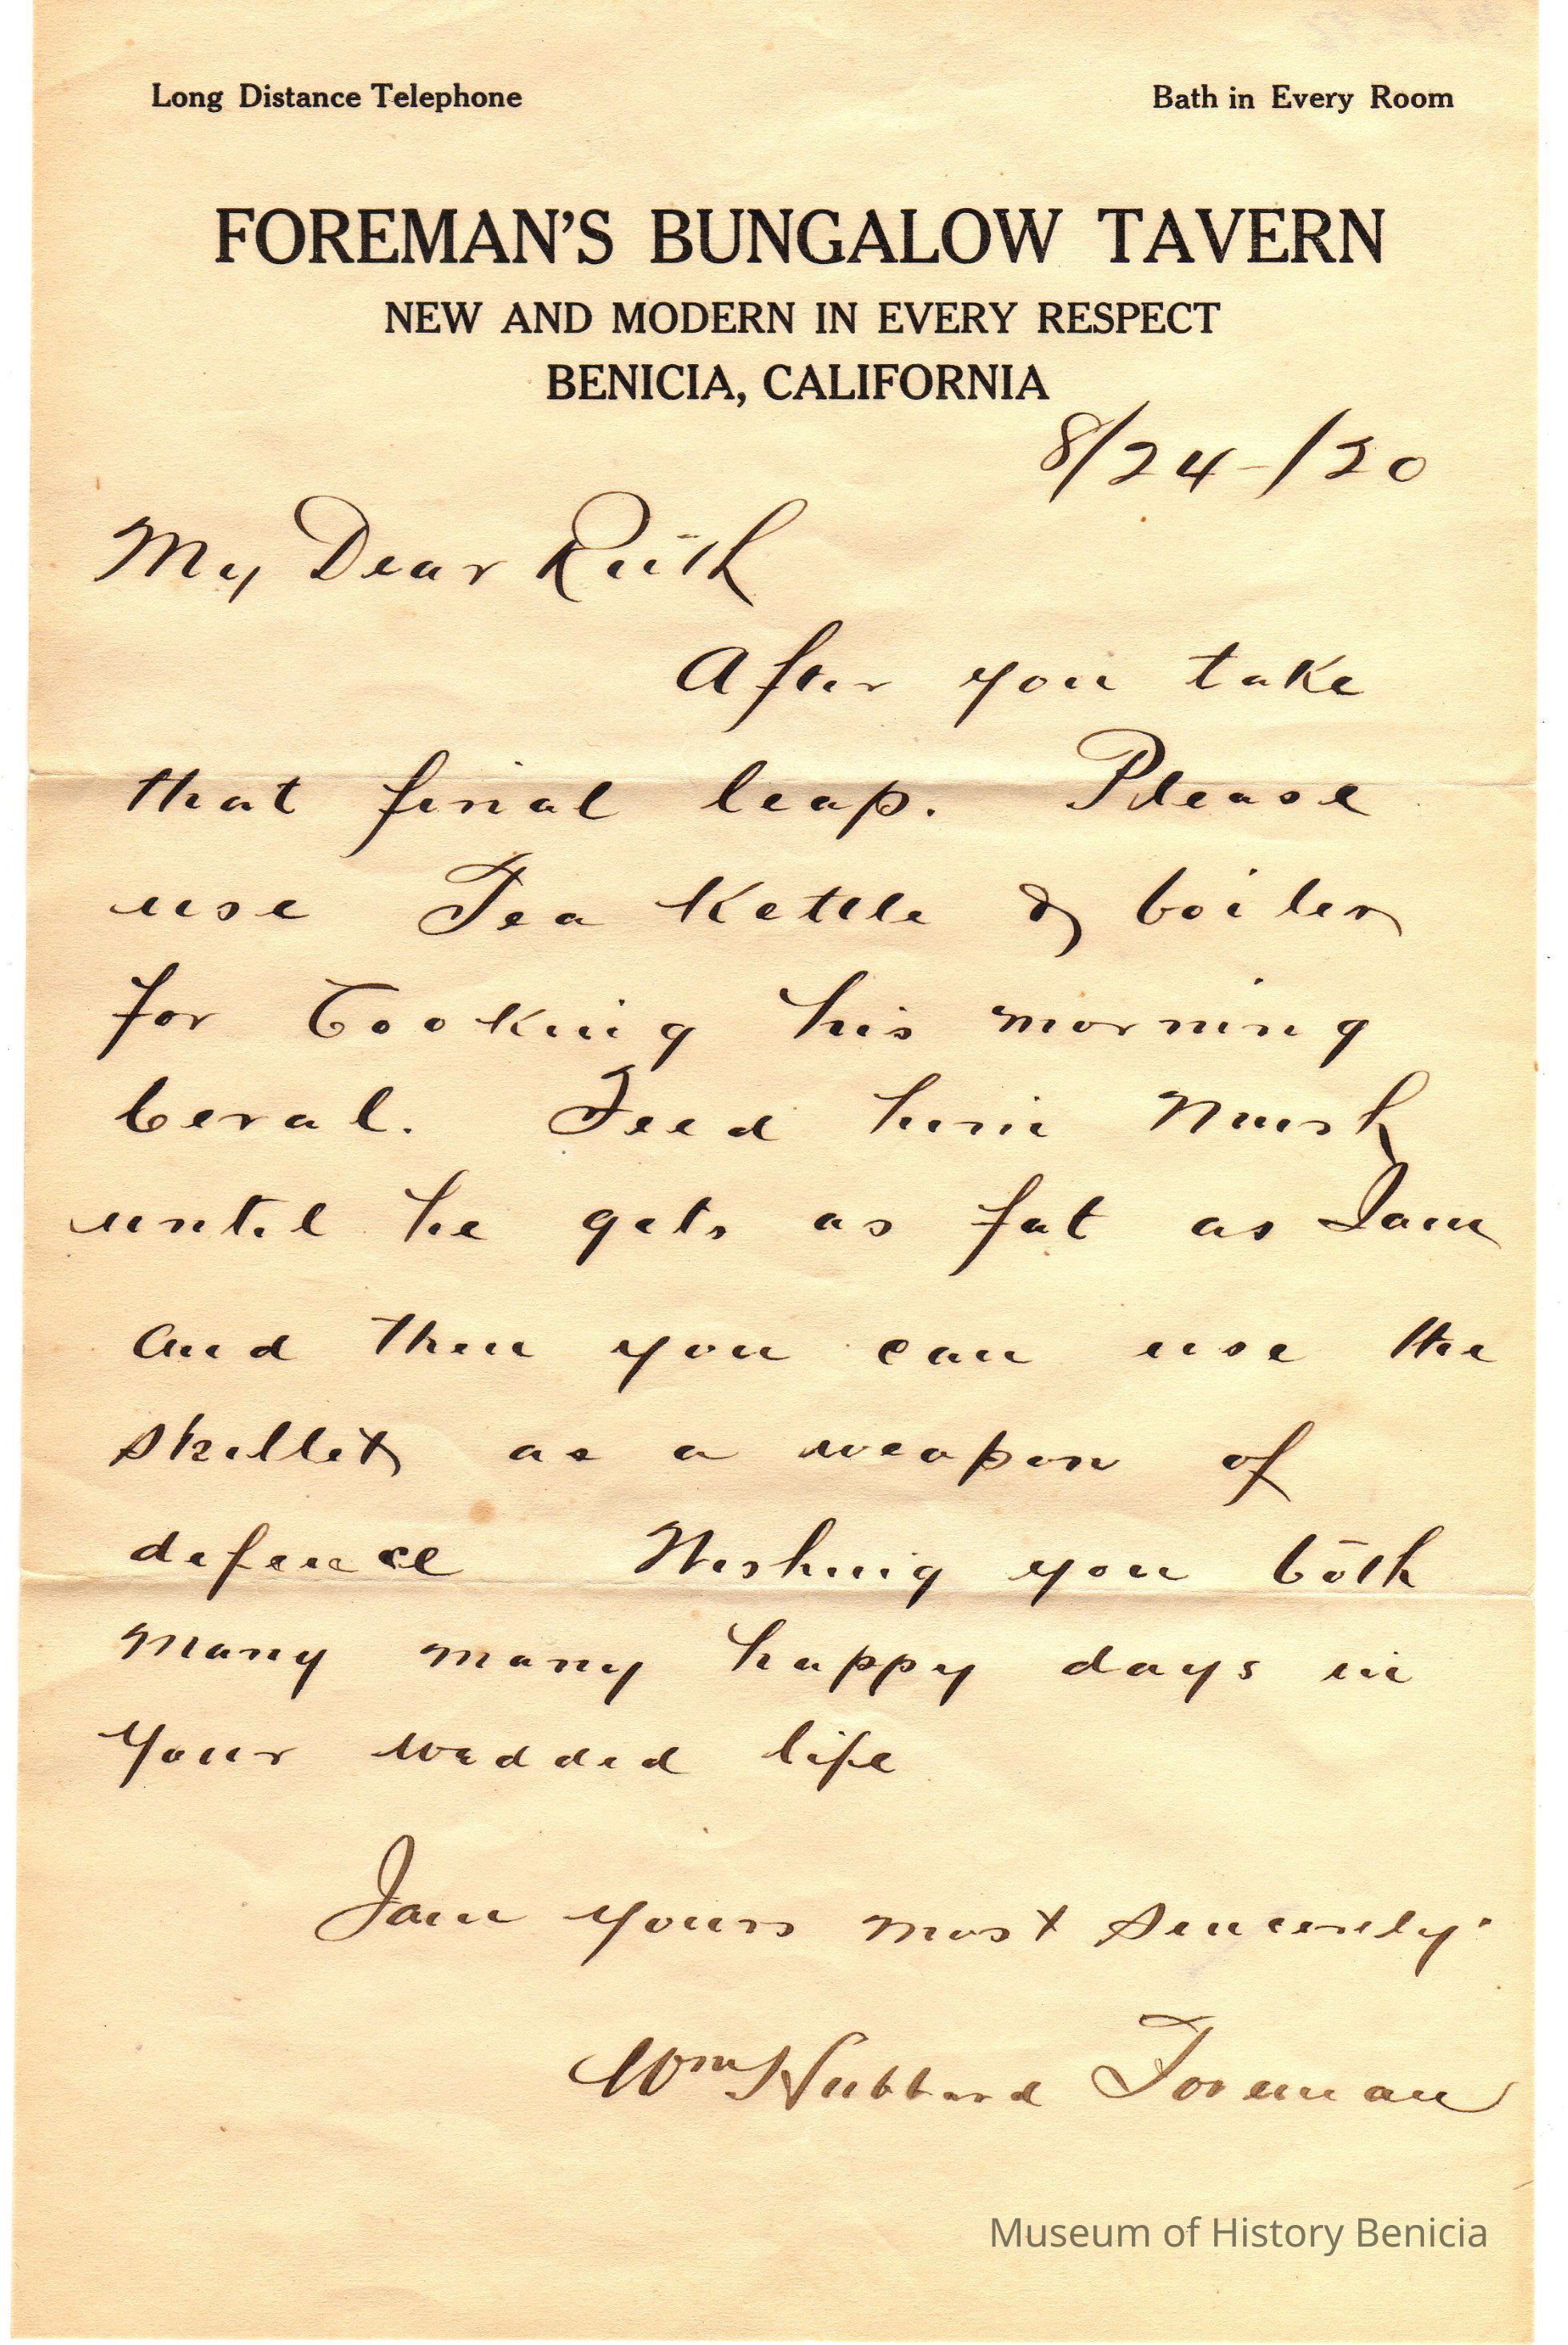 Long Distance Telephone
Bath in Every Room
FOREMAN'S BUNGALOW TAVERN
NEW AND MODERN IN EVERY RESPECT
BENICIA, CALIFORNIA
8/24-/20
My Dear Ruth
After you take
that final leap. Please
use Tea Kettle & boiler
for Cooking his morning
Ceral. Feed him Mush
until he gets as fat as I am
and then you can use the
skillet as a weapon of
defence Wishing you both
many many happy days in
your wedded life
I am yours most sincerely.
Wm Hubbard Foreman
Museum of History Benicia